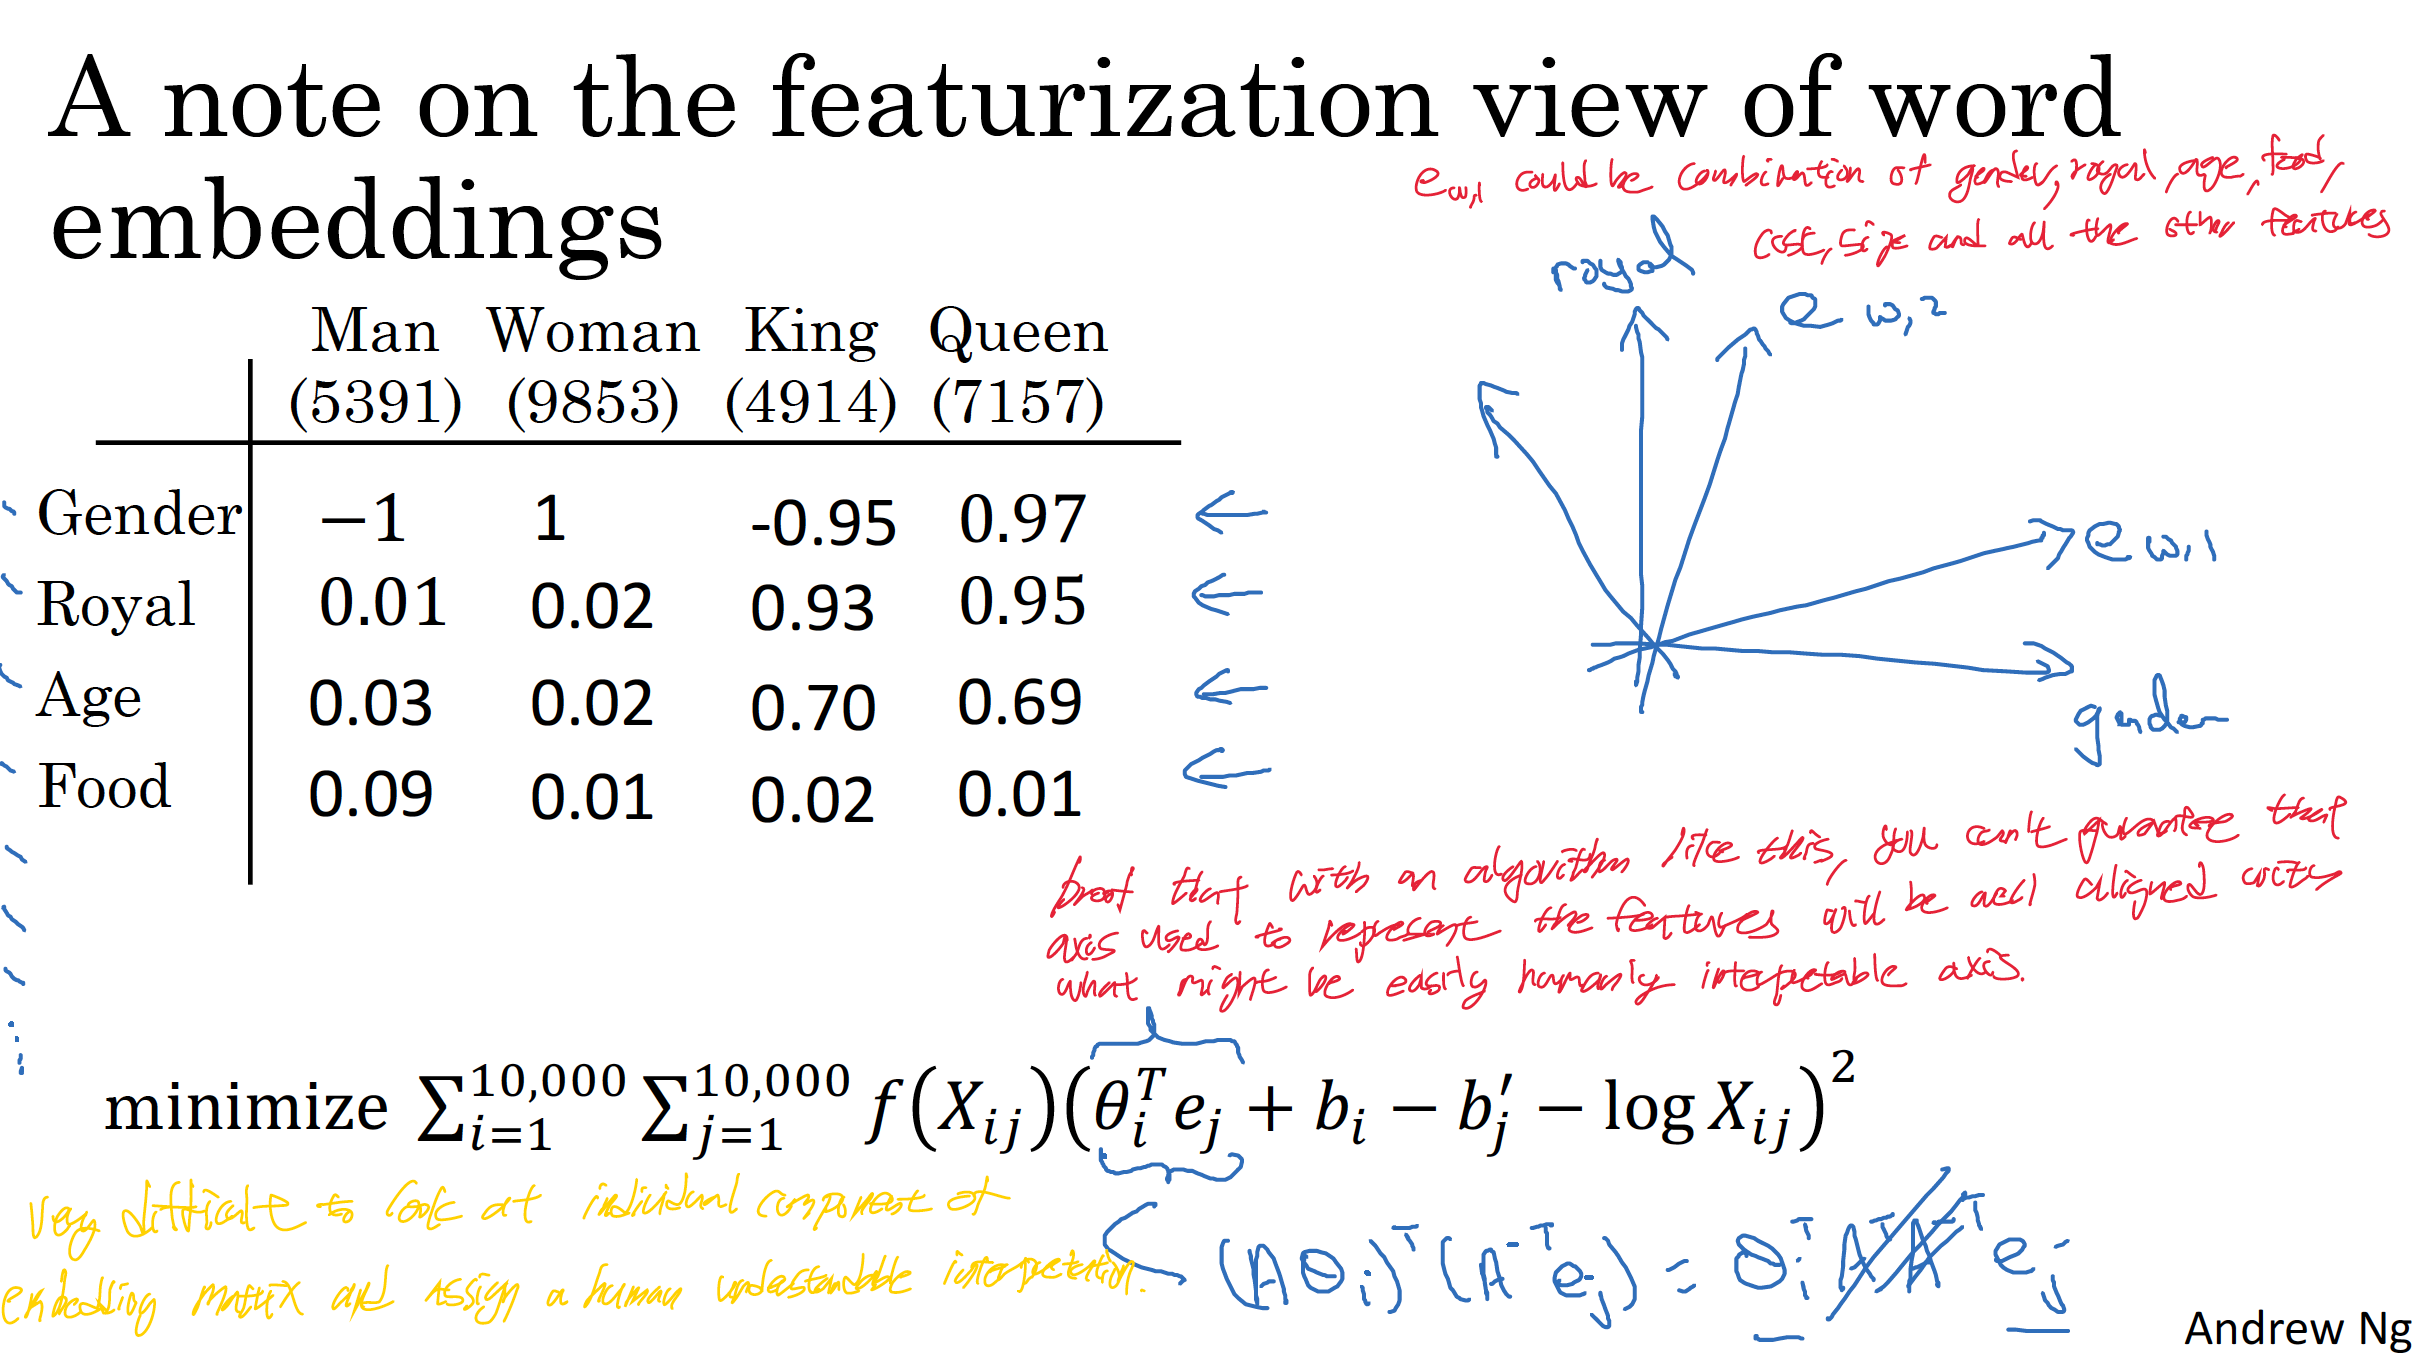 A note on the featurization view of word
embeddings
e w,1 could be combination of gender, royal, age, food,
cost, size and all the other features
royal
e w,2
e w,1
gender
Man Woman King Queen
(5391) (9853) (4914) (7157)
Gender −1 1 -0.95 0.97
Royal 0.01 0.02 0.93 0.95
Age 0.03 0.02 0.70 0.69
Food 0.09 0.01 0.02 0.01
proof that with an algorithm like this, you can't gurantee that
axis used to represent the features will be well aligned with
what might be easily humanly interpetable axis.
minimize ∑_{i=1}^{10,000} ∑_{j=1}^{10,000} f(X_{ij})(θ_i^T e_j + b_i − b'_j − log X_{ij})^2
Very difficult to look at individual component of
embedding matrix and assign a human understandable interpretation.
(Aθ_i)^T (A^{-T} e_j) = θ_i^T A^T A^{-T} e_j
Andrew Ng